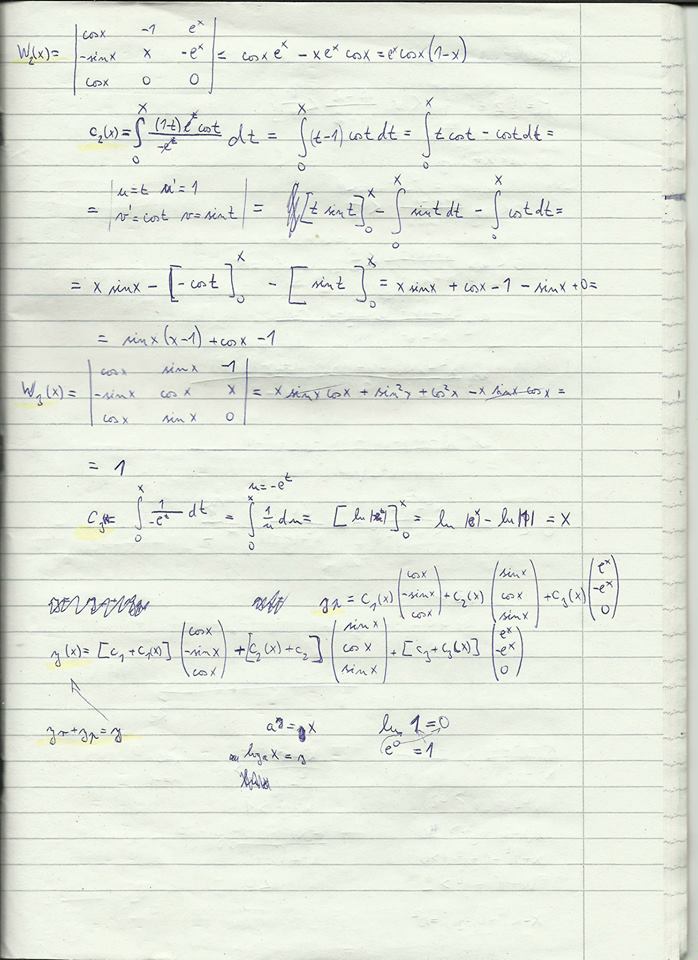 W₂(x) = | cosx -1 eˣ ; -sinx x -eˣ ; cosx 0 0 | = cosx eˣ - x eˣ cosx = eˣ cosx (1-x)
c₂(x) = ∫₀ˣ (1-t) eᵗ cost / -eᵗ dt = ∫₀ˣ (t-1) cost dt = ∫₀ˣ t cost - cost dt =
= | u=t u'=1 ; v'=cost v=sint | = [t sint]₀ˣ - ∫₀ˣ sint dt - ∫₀ˣ cost dt =
= x sinx - [-cost]₀ˣ - [sint]₀ˣ = x sinx + cosx - 1 - sinx + 0 =
= sinx (x-1) + cosx - 1
W₃(x) = | cosx sinx -1 ; -sinx cosx x ; cosx sinx 0 | = x sinx cosx + sin²x + cos²x - x sinx cosx =
= 1
u = -eᵗ
c₃ = ∫₀ˣ 1/-eᵗ dt = ∫₀ˣ 1/u du = [ln |eᵗ|]₀ˣ = ln |eˣ| - ln |1| = x
yp = c₁(x) (cosx ; -sinx ; cosx) + c₂(x) (sinx ; cosx ; sinx) + c₃(x) (eˣ ; -eˣ ; 0)
y(x) = [c₁ + c₁(x)] (cosx ; -sinx ; cosx) + [c₂(x) + c₂] (sinx ; cosx ; sinx) + [c₃ + c₃(x)] (eˣ ; -eˣ ; 0)
yr + yp = y
aʸ = x
logₐ x = y
ln 1 = 0
e⁰ = 1